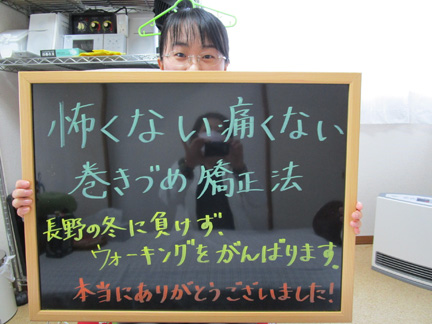 怖くない痛くない
巻きづめ矯正法
長野の冬に負けず、
ウォーキングをがんばります。
本当にありがとうございました!